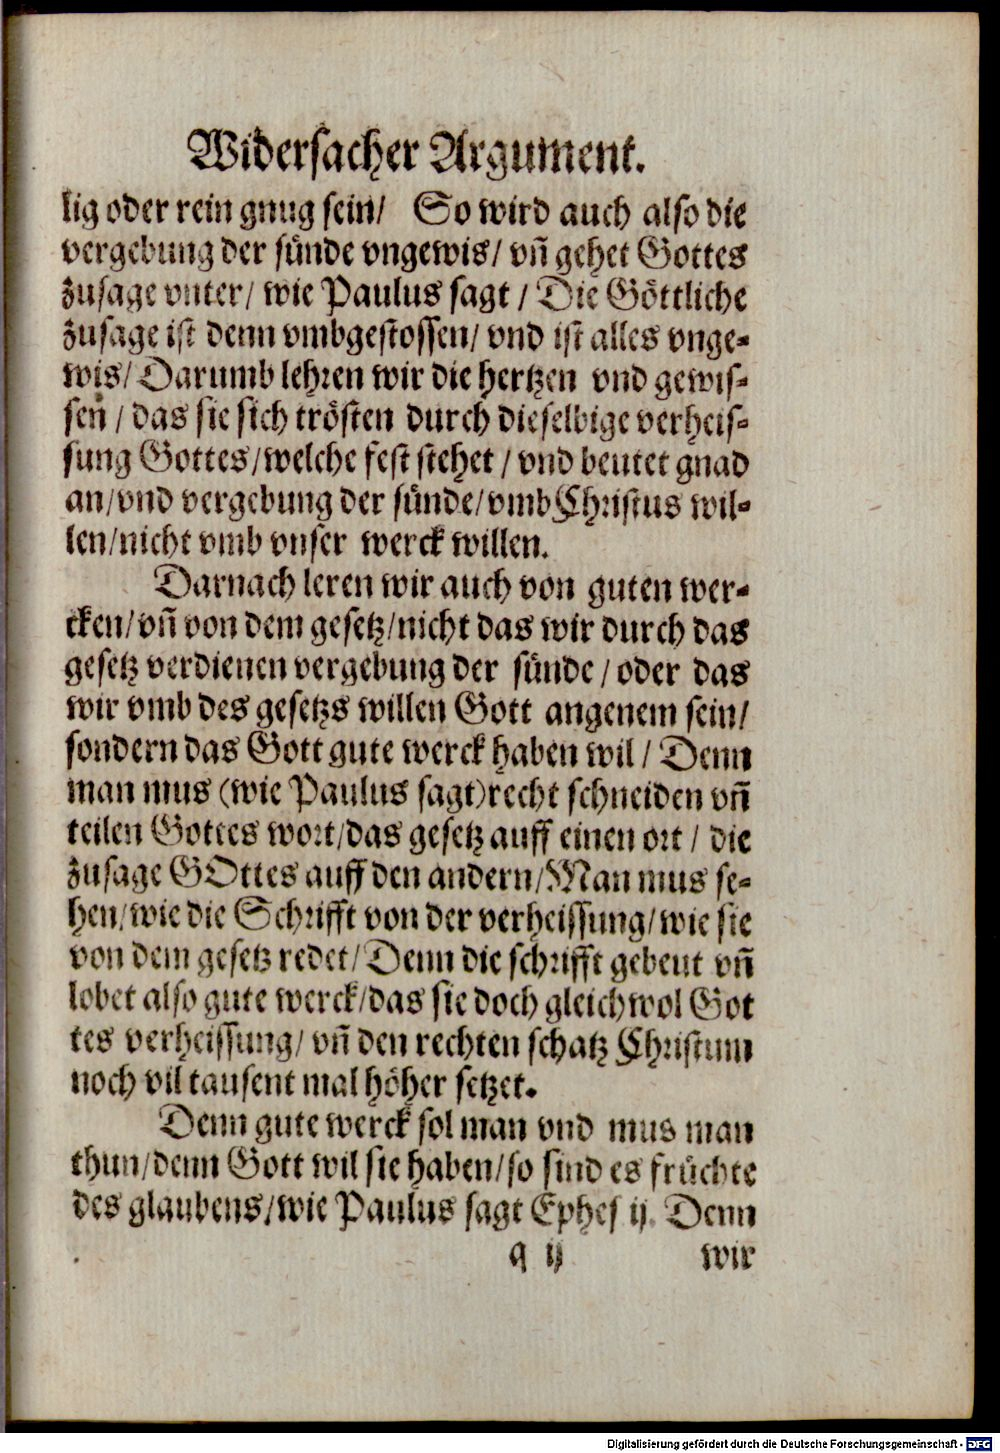 Widersacher Argument.
lig oder rein gnug sein/ So wird auch also die
vergebung der sünde vngewis/ vn̄ gehet Gottes
zusage vnter/ wie Paulus sagt / Die Göttliche
zusage ist denn vmbgestossen/ vnd ist alles vnge-
wis/ Darumb lehren wir die hertzen vnd gewis-
sen / das sie sich trösten durch dieselbige verheis-
sung Gottes/welche fest stehet / vnd beutet gnad
an/vnd vergebung der sünde/vmb Christus wil-
len/nicht vmb vnser werck willen.
Darnach leren wir auch von guten wer-
cken/vn̄ von dem gesetz/nicht das wir durch das
gesetz verdienen vergebung der sünde / oder das
wir vmb des gesetzs willen Gott angenem sein/
sondern das Gott gute werck haben wil / Denn
man mus (wie Paulus sagt)recht schneiden vn̄
teilen Gottes wort/das gesetz auff einen ort / die
zusage GOttes auff den andern/Man mus se-
hen/wie die Schrifft von der verheissung/wie sie
von dem gesetz redet/Denn die schrifft gebeut vn̄
lobet also gute werck/das sie doch gleichwol Got
tes verheissung/ vn̄ den rechten schatz Christum
noch vil tausent mal höher setzet.
Denn gute werck sol man vnd mus man
thun/denn Gott wil sie haben/so sind es früchte
des glaubens/wie Paulus sagt Ephes ij. Denn
q ij wir
Digitalisierung gefördert durch die Deutsche Forschungsgemeinschaft - DFG